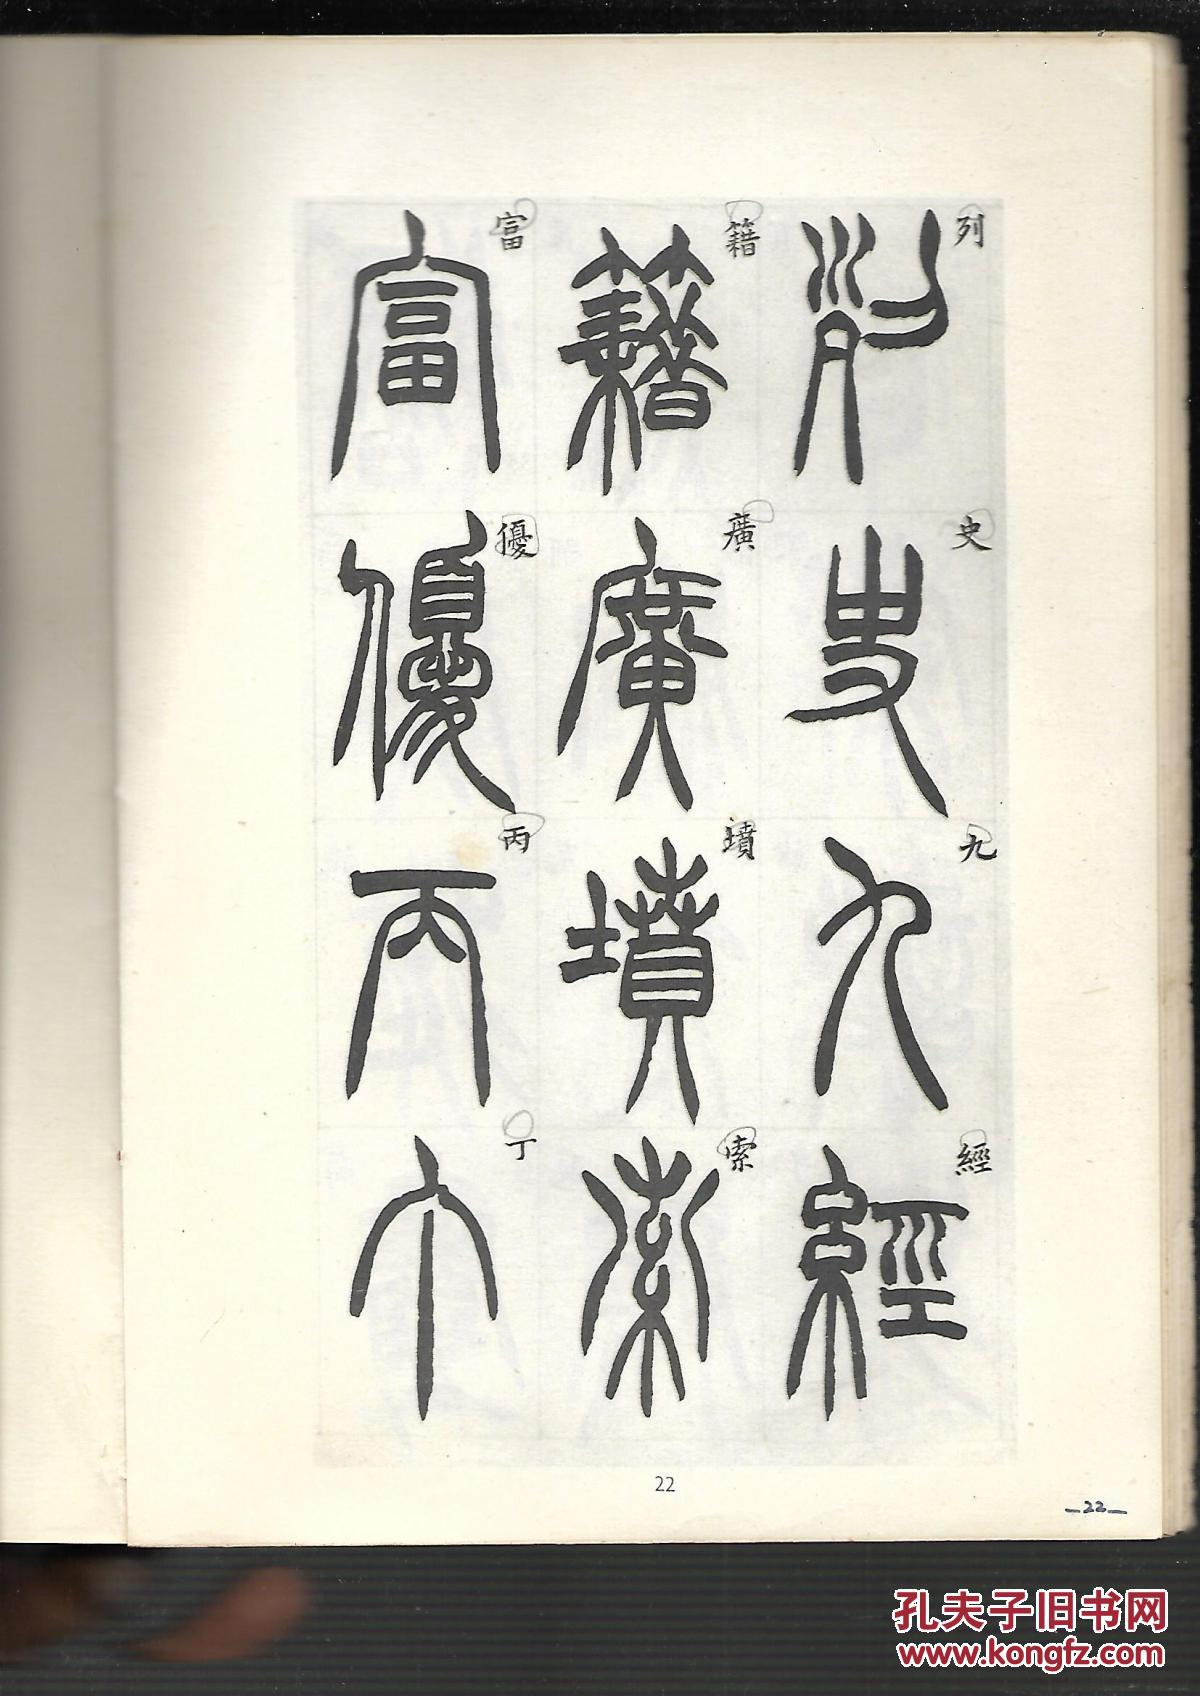 列史九經
籍廣墳索
富優丙丁
22
—22—
孔夫子旧书网
www.kongfz.com